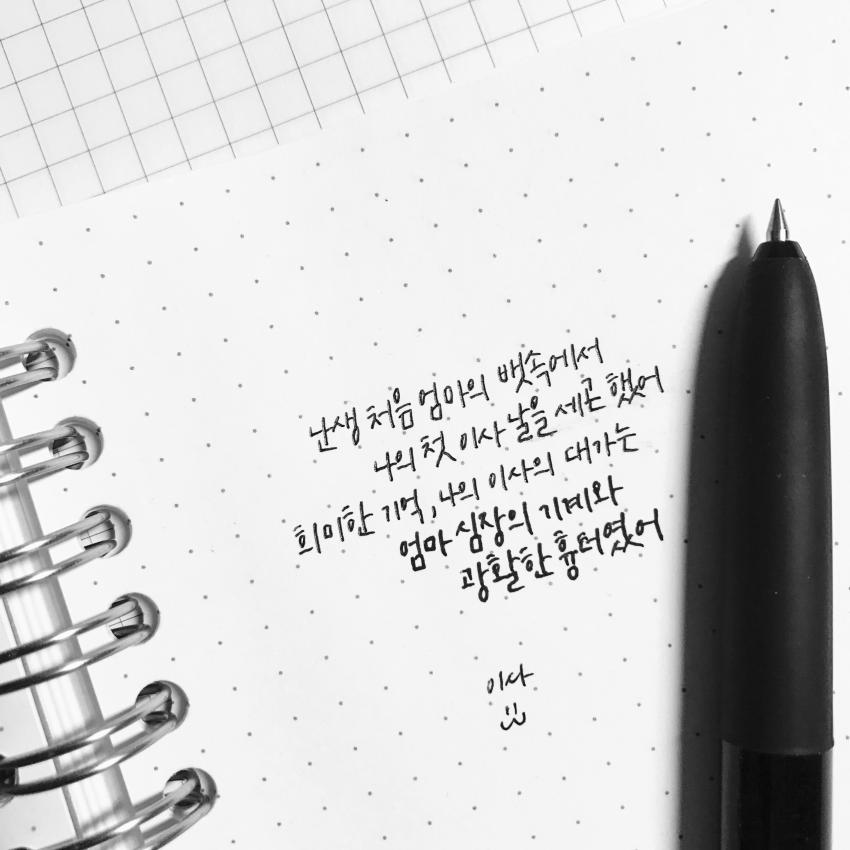 난생 처음 엄마의 뱃속에서
나의 첫 이사 날을 세곤 했어
희미한 기억, 나의 이사의 대가는
엄마 심장의 기계와
광활한 흉터였어
이사